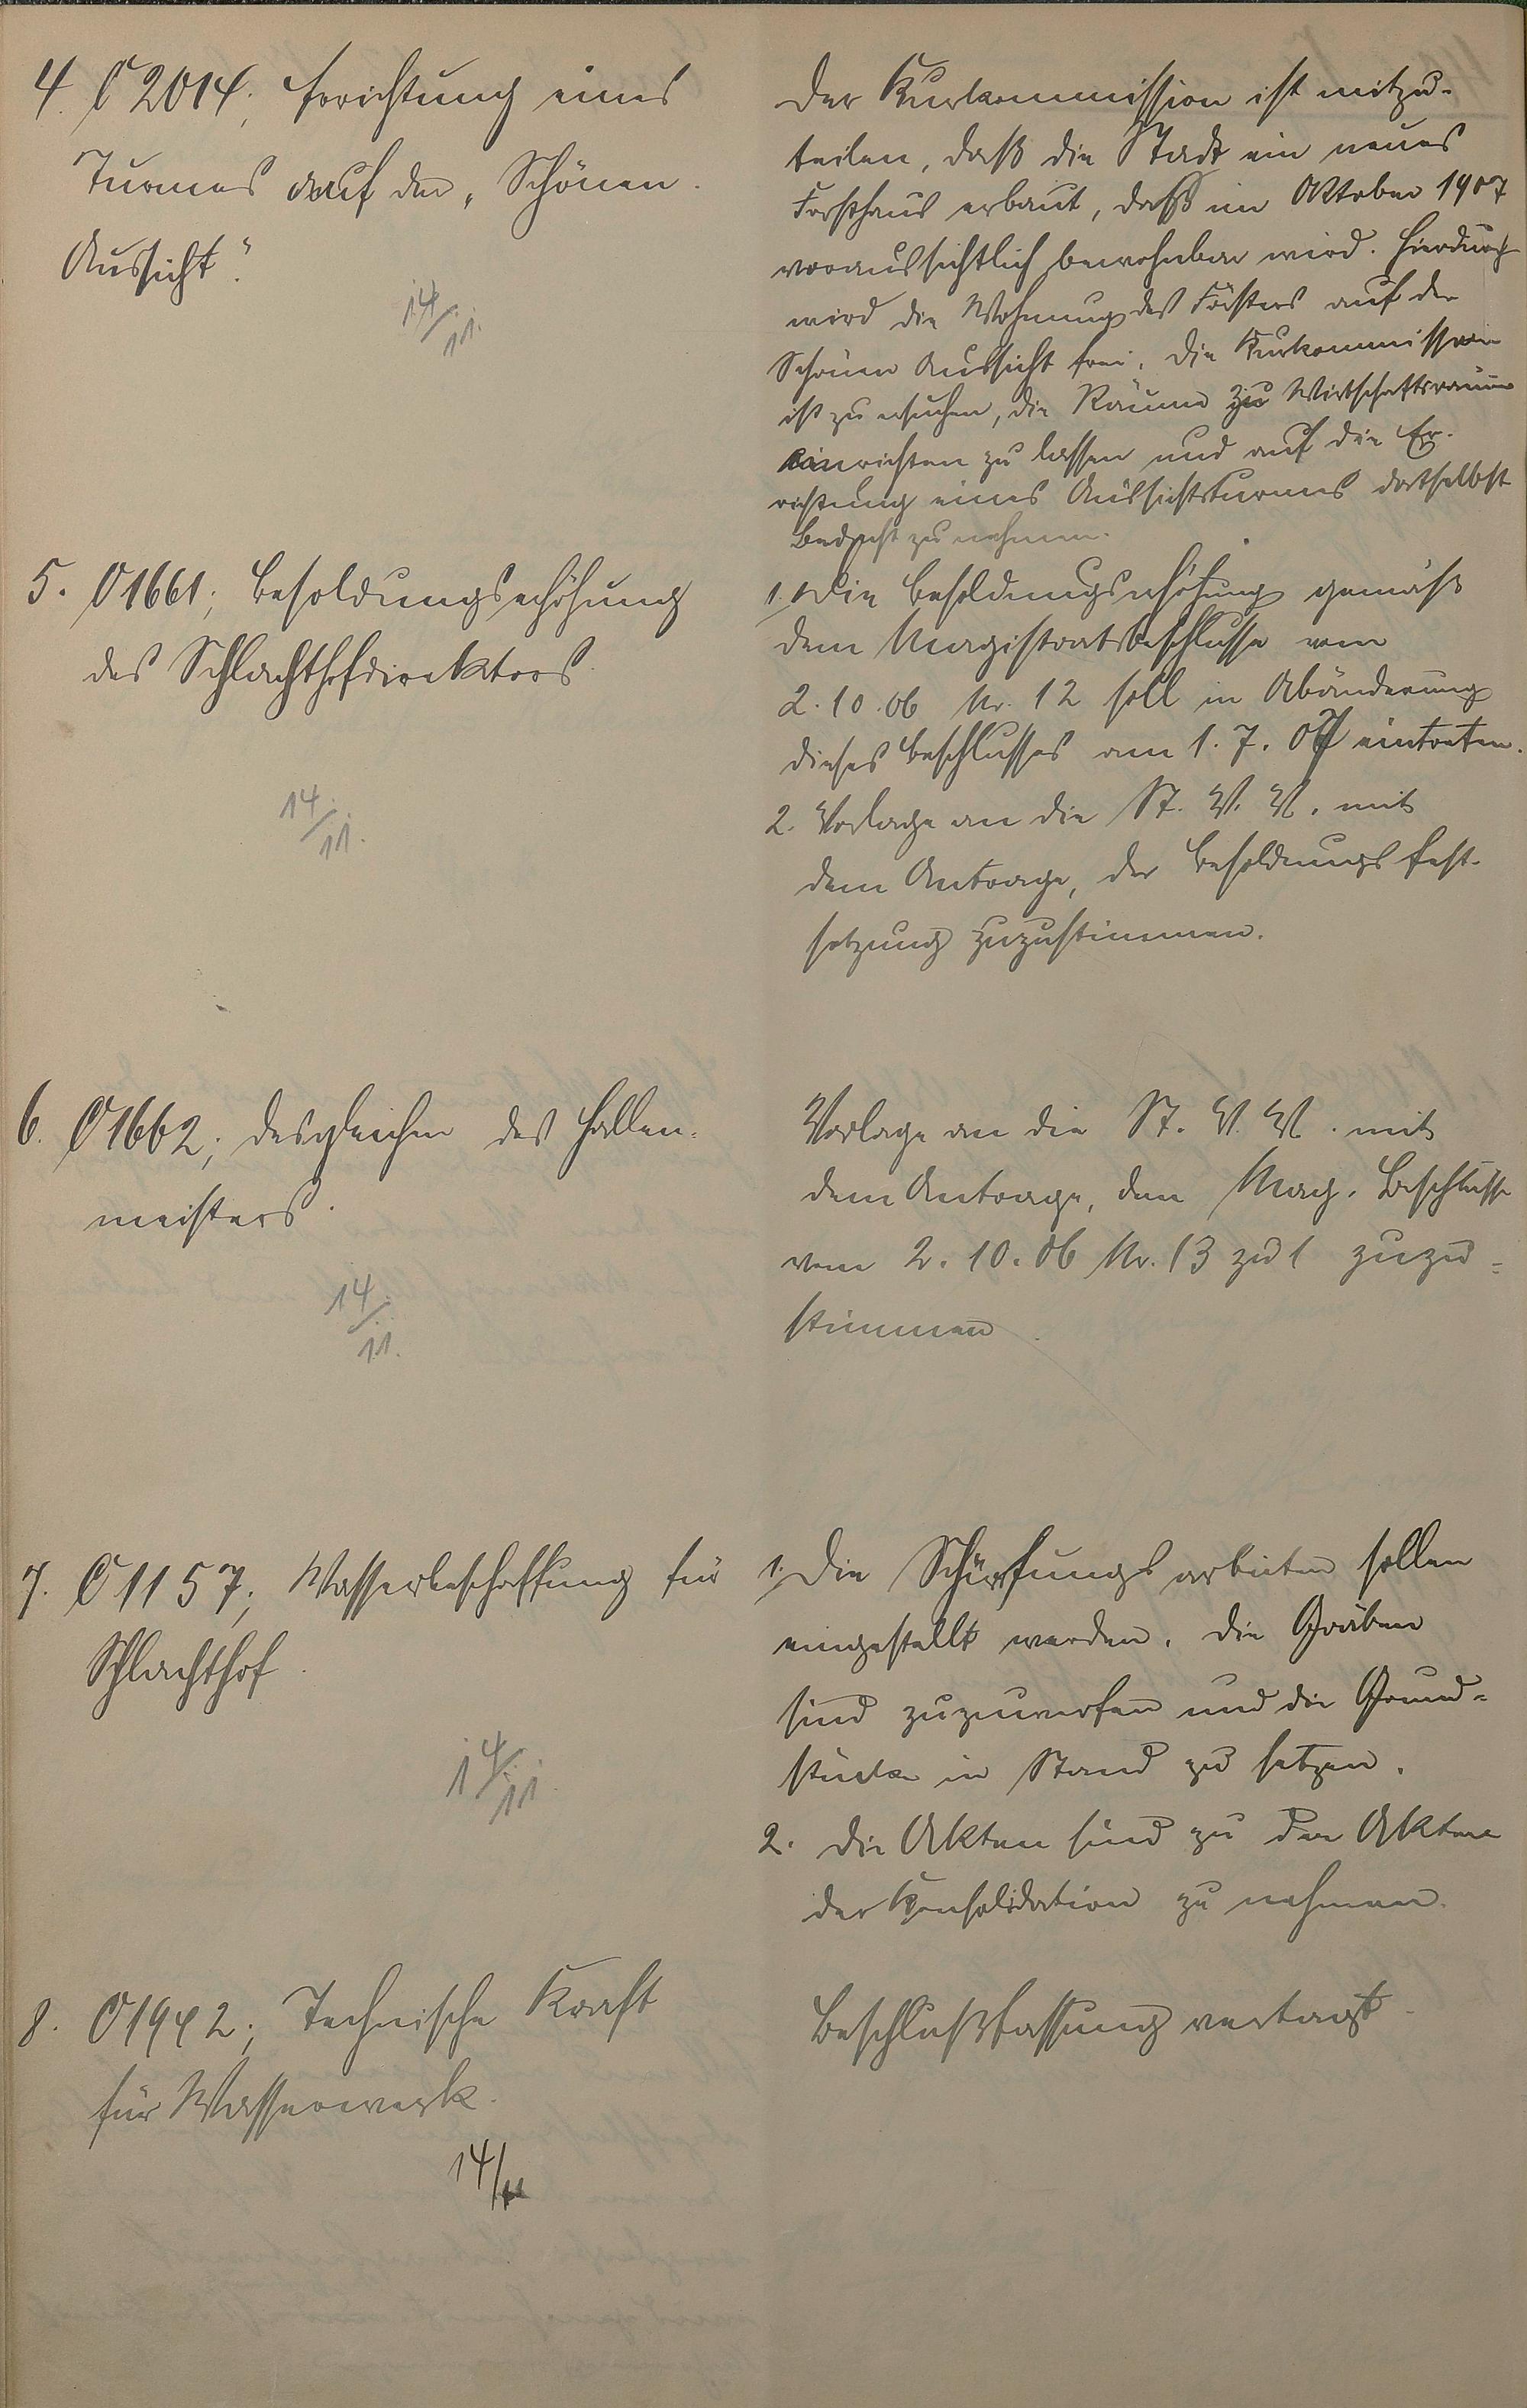 4. O 2014; Errichtung eines
Turmes auf der „Schönen
Aussicht".
14/11.
Der Kurkommission ist mitzu-
teilen, daß die Stadt ein neues
Forsthaus erbaut, daß im Oktober 1907
voraussichtlich bewohnbar wird. Hierdurch
wird die Wohnung des Försters auf der
Schönen Aussicht frei. Die Kurkommission
ist zu ersuchen, die Räume zu Wirtschaftsräume
einrichten zu lassen und auf die Er-
richtung eines Aussichtsturmes dortselbst
Bedacht zu nehmen.
5. O 1661; Besoldungserhöhung
des Schlachthofdirektors.
14/11.
1. Die Besoldungserhöhung gemäß
dem Magistratsbeschlusse vom
2.10.06 Nr. 12 soll in Abänderung
dieses Beschlusses am 1.7.07 eintreten.
2. Vorlage an die St. V. V. mit
dem Antrage, der Besoldungsfest-
setzung zuzustimmen.
6. O 1662; desgleichen des Hallen-
meisters.
14/11.
Vorlage an die St. V. V. mit
dem Antrage, dem Mag. Beschlusse
vom 2.10.06 Nr. 13 zu 1 zuzu=
stimmen.
7. O 1157; Wasserbeschaffung für
Schlachthof.
14/11.
1. Die Schürfungsarbeiten sollen
eingestellt werden. Die Gräben
sind zuzuwerfen und die Grund=
stücke in Stand zu setzen.
2. Die Akten sind zu den Akten
der Konsolidation zu nehmen.
8. O 1942; Technische Kraft
für Wasserwerk.
14/11
Beschlußfassung vertagt.